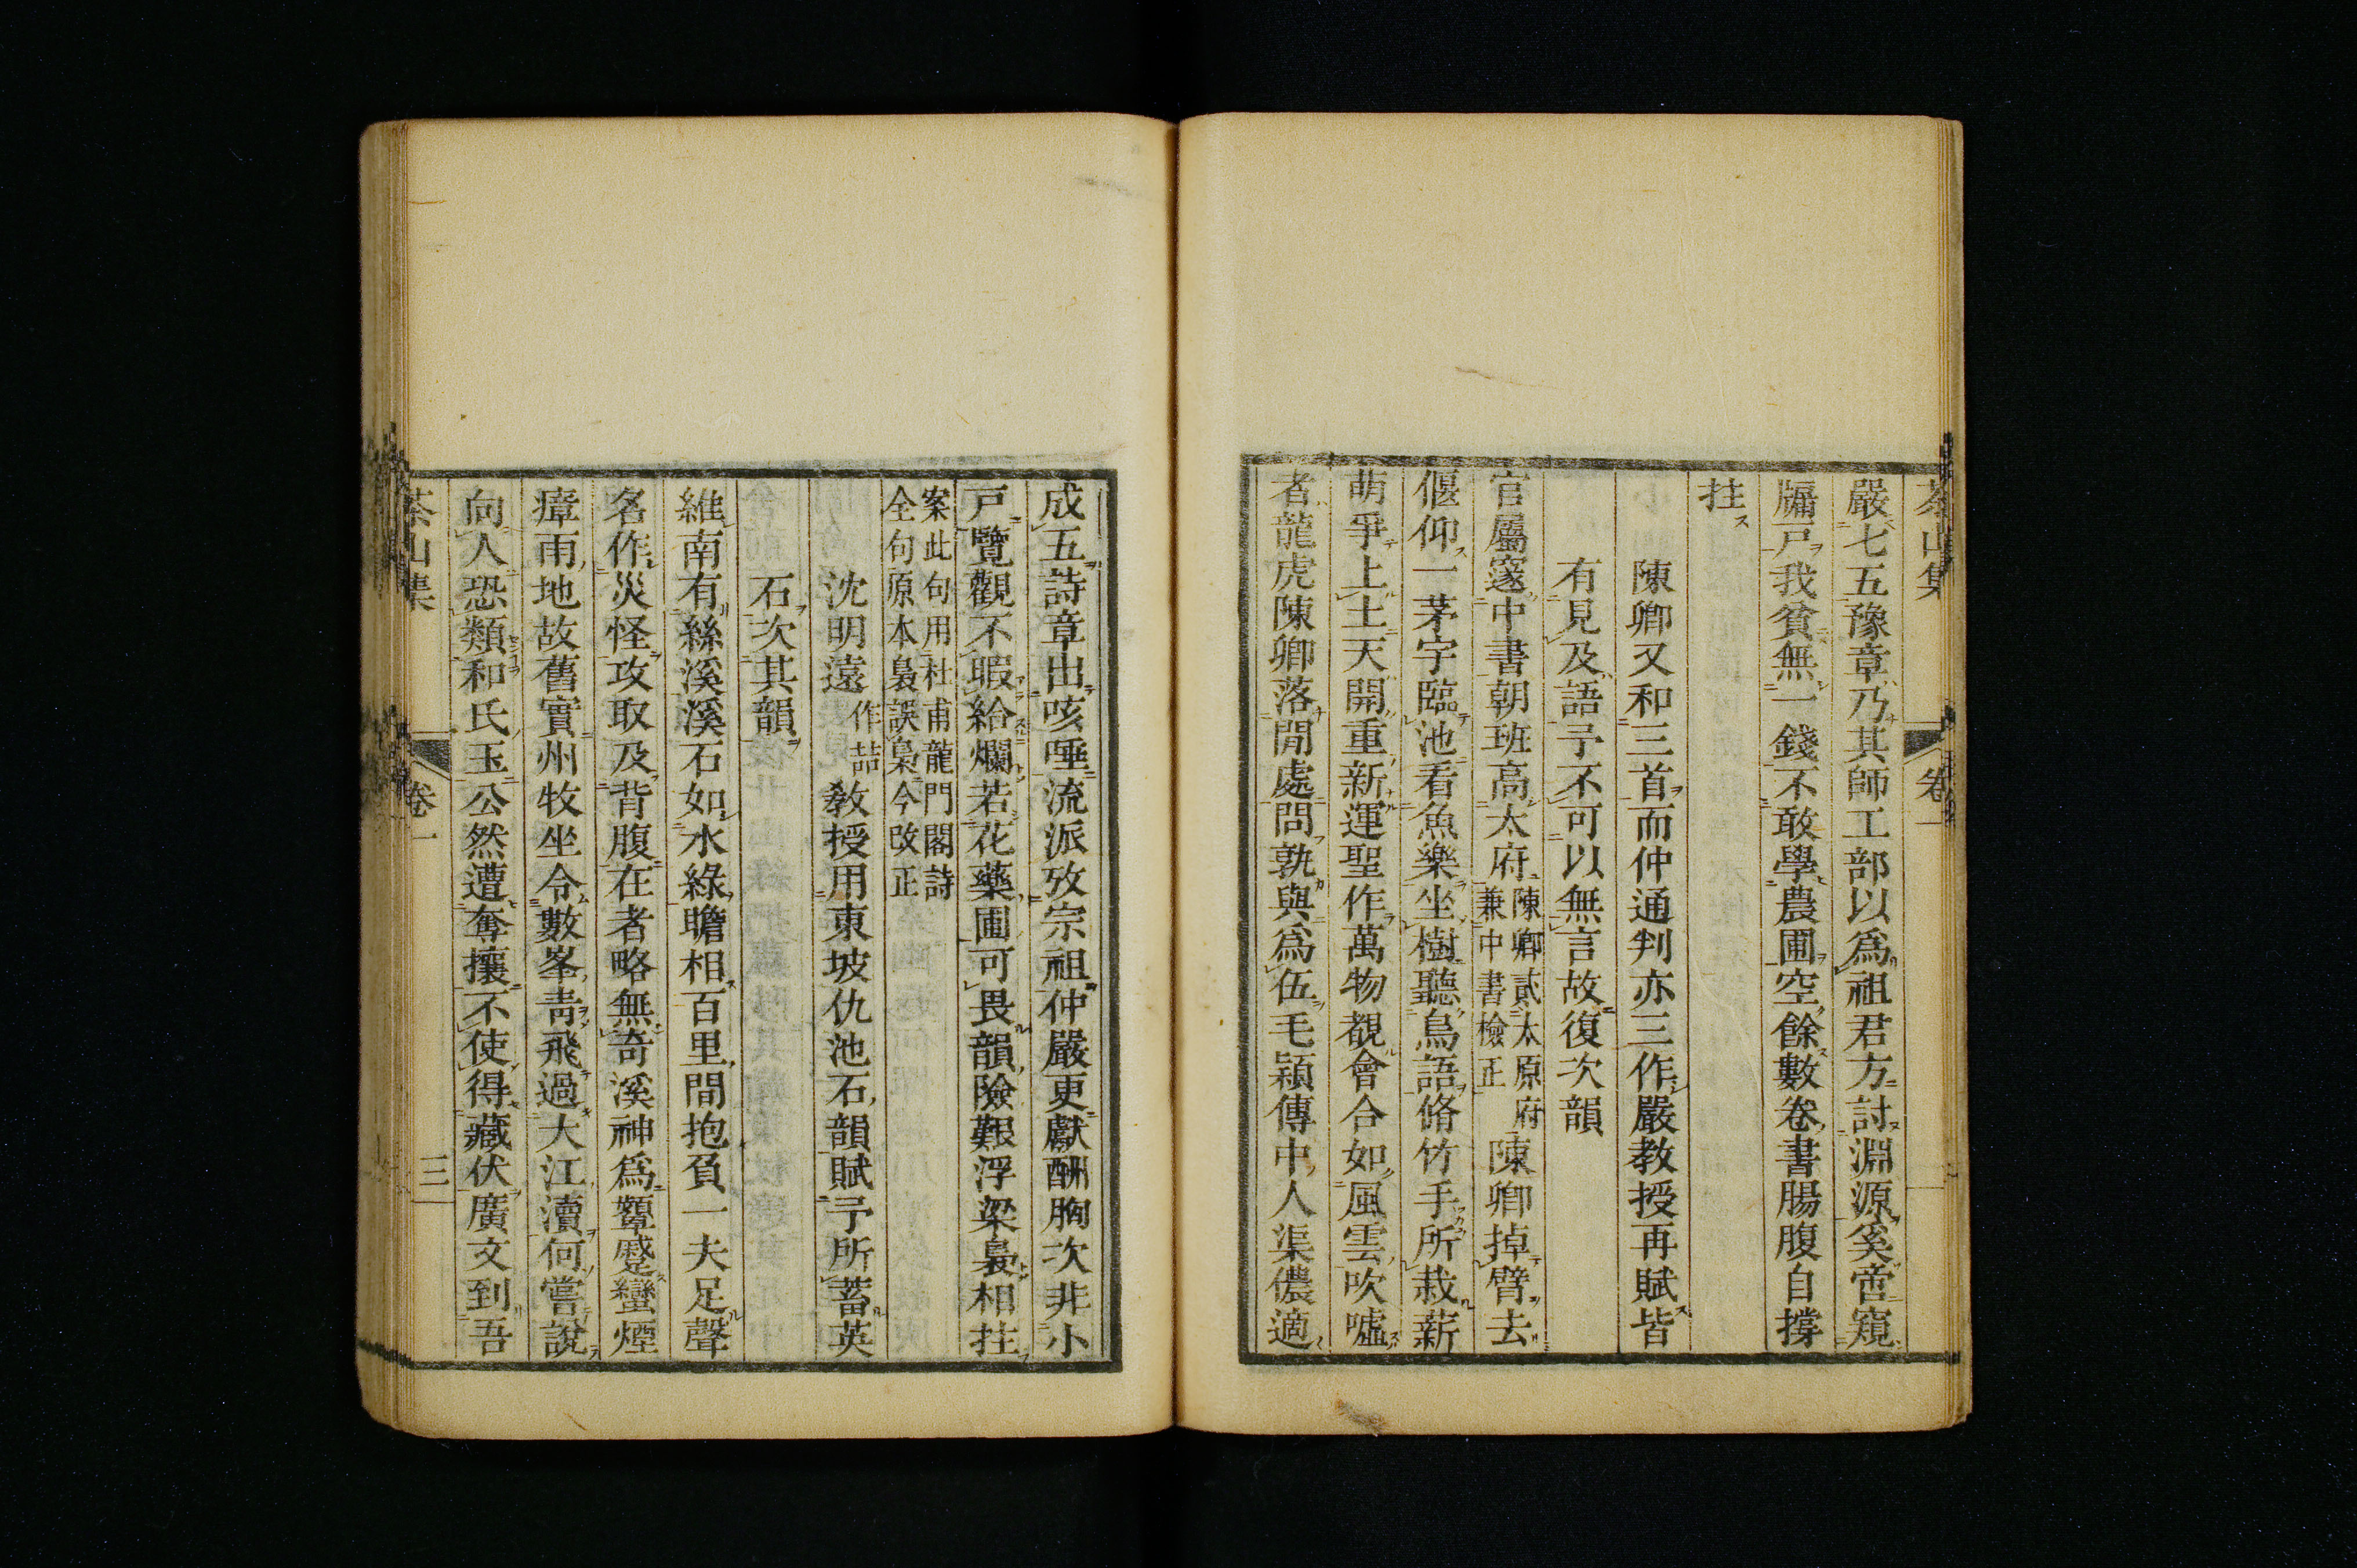 茶山集 卷一
嚴七五豫章乃其師工部以爲祖君方討淵源奚啻窺
牖戸我貧無一錢不敢學農圃空餘數卷書腸腹自撐
拄
陳卿又和三首而仲通判亦三作嚴教授再賦皆
有見及語予不可以無言故復次韻
官屬邃中書朝班高太府陳卿貳太原府兼中書檢正陳卿掉臂去
偃仰一茅宇臨池看魚樂坐樹聽鳥語脩竹手所栽薪
萌爭上土天開重新運聖作萬物覩會合如風雲吹噓
者龍虎陳卿落閒處問孰與爲伍毛穎傳中人渠儂適
成五詩章出咳唾流派攷宗祖仲嚴更獻酬胸次非小
戸覽觀不暇給爛若花藥圃可畏韻險艱浮梁裊相拄
案此句用杜甫龍門閣詩
全句原本裊誤梟今改正
沈明遠作喆教授用東坡仇池石韻賦予所蓄英
石次其韻
維南有絲溪溪石如水綠瞻相百里間抱負一夫足聲
名作災怪攻取及背腹在者略無奇溪神爲顰蹙蠻煙
瘴雨地故舊實州牧坐令數峯青飛過大江瀆何嘗說
向人恐類和氏玉公然遭奪攘不使得藏伏廣文到吾
茶山集 卷一 三